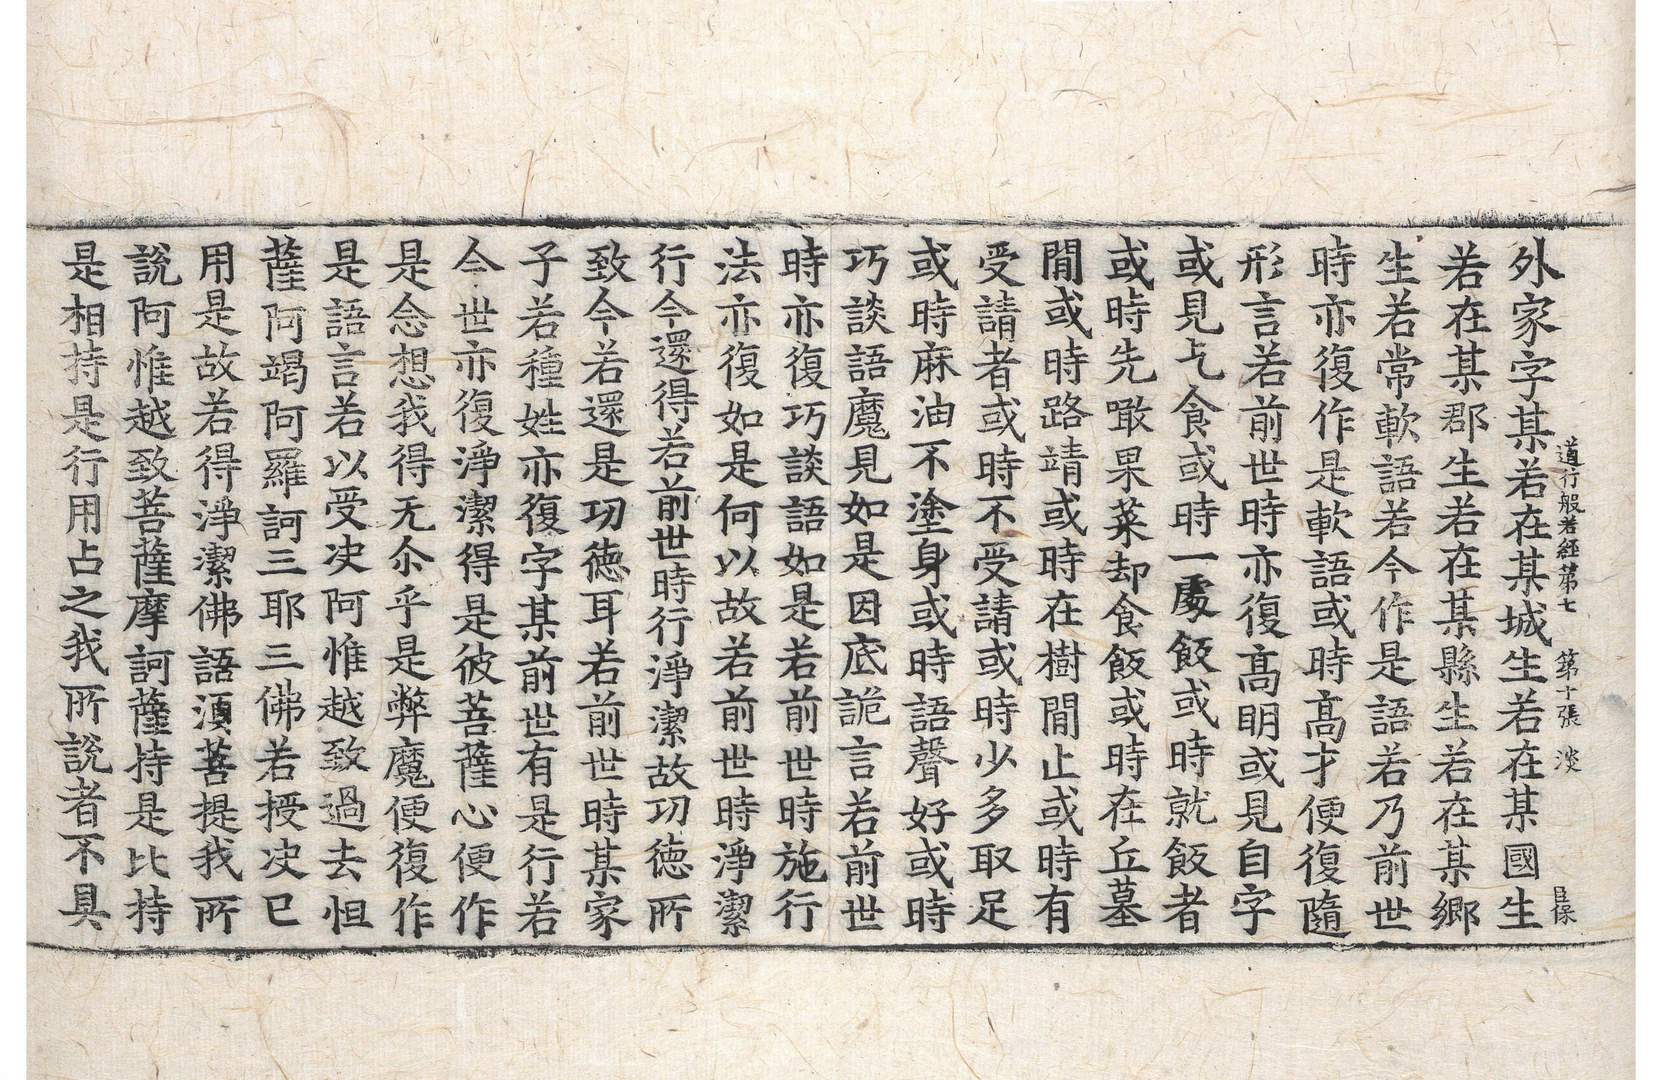 道行般若經第七　第十張　淡　臣保
外家字某若在某城生若在某國生
若在某郡生若在某縣生若在某鄉
生若常軟語若今作是語若乃前世
時亦復作是軟語或時高才便復隨
形言若前世時亦復高明或見自字
或見乞食或時一處飯或時就飯者
或時先噉果菜却食飯或時在丘墓
閒或時路靖或時在樹閒止或時有
受請者或時不受請或時少多取足
或時麻油不塗身或時語聲好或時
巧談語魔見如是因底詭言若前世
時亦復巧談語如是若前世時施行
法亦復如是何以故若前世時淨潔
行今還得若前世時行淨潔故功德所
致今若還是功德耳若前世時某家
子若種姓亦復字某前世有是行若
今世亦復淨潔得是彼菩薩心便作
是念想我得无尒乎是弊魔便復作
是語言若以受决阿惟越致過去怛
薩阿竭阿羅訶三耶三佛若授决已
用是故若得淨潔佛語湏菩提我所
說阿惟越致菩薩摩訶薩持是比持
是相持是行用占之我所說者不具